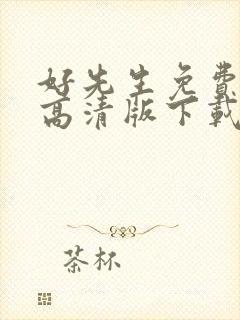 好先生免费
高清版下载
茶杯